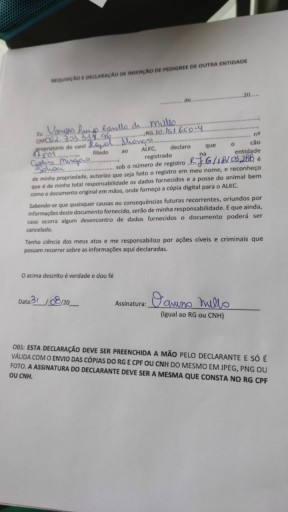 REQUISIÇÃO E DECLARAÇÃO DE INSERÇÃO DE PEDIGREE DE OUTRA ENTIDADE
de 20
Eu de Mello
RG
proprietário do canil nº
filiado ao ALEC, declara que o cão
registrado na entidade
sob o número de registro é
de minha propriedade, autorizo que seja feito o registro em meu nome, e reconheço
que é de minha total responsabilidade os dados fornecidos e a posse do animal bem
como o documento original em mãos, onde forneço a cópia digital para o ALEC.
Sabendo-se que quaisquer causas ou consequências futuras recorrentes, oriundos por
informações deste documento fornecido, serão de minha responsabilidade. E que ainda,
caso ocorra algum desencontro de dados fornecidos o documento poderá ser
cancelado.
Tenho ciência dos meus atos e me responsabilizo por ações cíveis e criminais que
possam recorrer sobre as informações aqui declaradas.
O acima descrito é verdade e dou fé
Data 31 /08/20 Assinatura: Mello
(Igual ao RG ou CNH)
OBS: ESTA DECLARAÇÃO DEVE SER PREENCHIDA A MÃO PELO DECLARANTE E SÓ É
VÁLIDA COM O ENVIO DAS CÓPIAS DO RG E CPF OU CNH DO MESMO EM JPEG, PNG OU
FOTO. A ASSINATURA DO DECLARANTE DEVE SER A MESMA QUE CONSTA NO RG CPF
OU CNH.